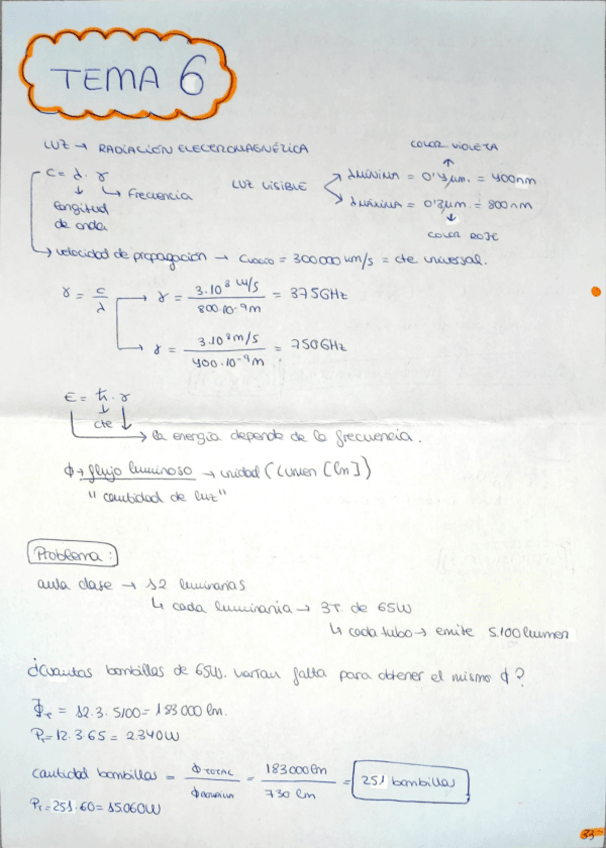 TEMA 6
LUZ → RADIACIÓN ELECTROMAGNÉTICA
COLOR VIOLETA
↑
C = λ · γ
↳ Frecuencia
Longitud
de onda
LUZ VISIBLE
λMÍNIMA = 0'4μm. = 400nm
λMÁXIMA = 0'8μm. = 800nm
↓
COLOR ROJE
↳ velocidad de propagación → Cvacio = 300000 km/s = cte universal.
γ = c/λ → γ = 3·10⁸ m/s / 800·10⁻⁹m = 375GHz
→ γ = 3·10⁸m/s / 400·10⁻⁹m = 750GHz
E = ħ · γ
↓
cte
→ la energía depende de la frecuencia.
ϕ → flujo luminoso → unidad (Lumen [lm])
"cantidad de luz"
Problema:
aula clase → 12 luminarias
↳ cada luminaria → 3T. de 65W
↳ cada tubo → emite 5.100 lumen
¿Cuantas bombillas de 65W. varran falta para obtener el mismo ϕ?
ΦT = 12·3·5100 = 183000 lm.
PT = 12·3·65 = 2.340W
Cantidad bombillas = ϕTOTAL / ϕbombilla = 183000lm / 730 lm = 251 bombillas
PT = 251·60 = 15.060W
33